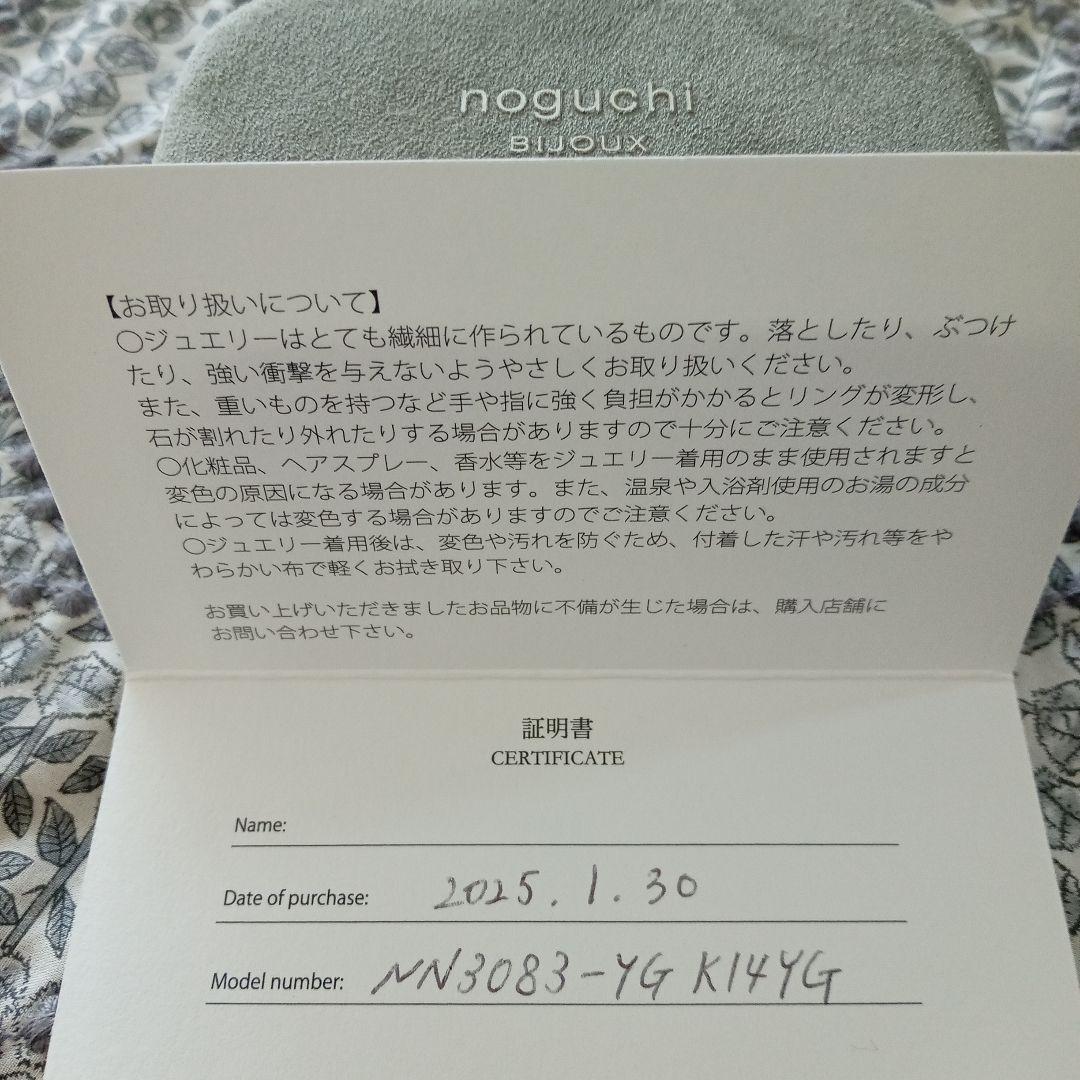 noguchi
BIJOUX
【お取り扱いについて】
○ジュエリーはとても繊細に作られているものです。落としたり、ぶつけ
たり、強い衝撃を与えないようやさしくお取り扱いください。
また、重いものを持つなど手や指に強く負担がかかるとリングが変形し、
石が割れたり外れたりする場合がありますので十分にご注意ください。
○化粧品、ヘアスプレー、香水等をジュエリー着用のまま使用されますと
変色の原因になる場合があります。また、温泉や入浴剤使用のお湯の成分
によっては変色する場合がありますのでご注意ください。
○ジュエリー着用後は、変色や汚れを防ぐため、付着した汗や汚れ等をや
わらかい布で軽くお拭き取り下さい。
お買い上げいただきましたお品物に不備が生じた場合は、購入店舗に
お問い合わせ下さい。
証明書
CERTIFICATE
Name:
Date of purchase: 2025.1.30
Model number: NN3083-YG K14YG